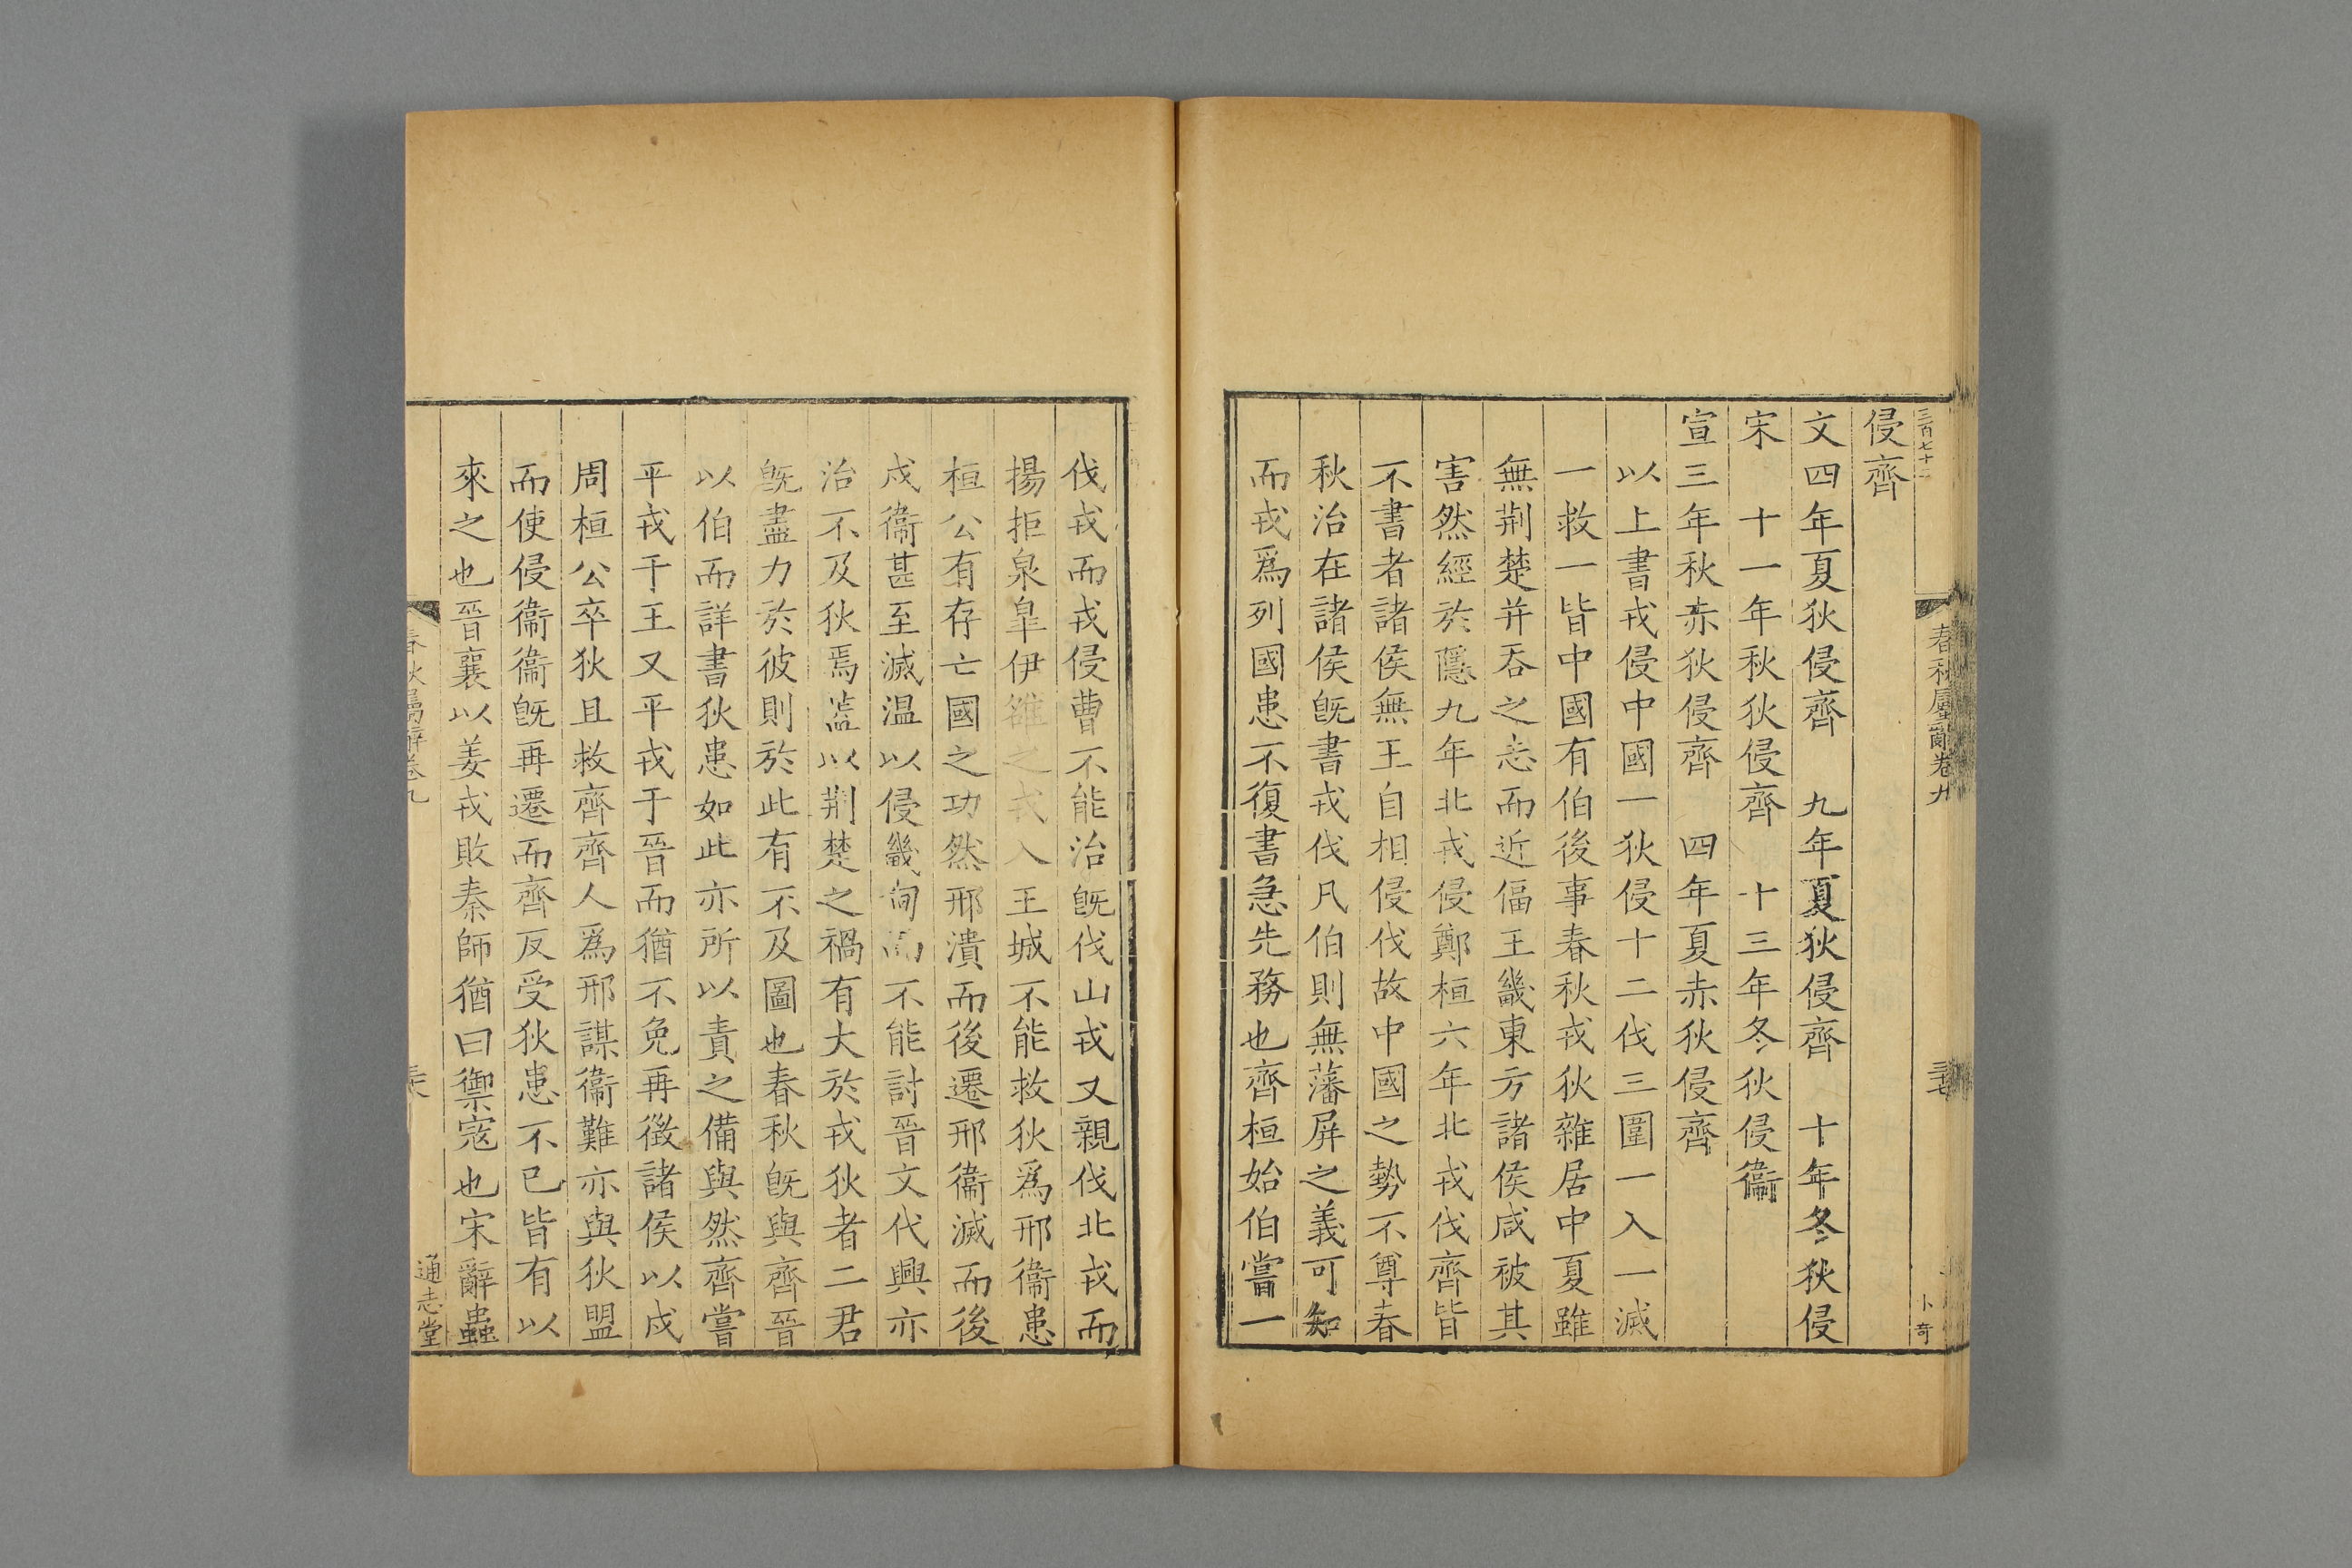 三百七十二
春秋屬辭卷九
三七
卜奇
侵齊
文四年夏狄侵齊　九年夏狄侵齊　十年冬狄侵
宋　十一年秋狄侵齊　十三年冬狄侵衞
宣三年秋赤狄侵齊　四年夏赤狄侵齊
以上書戎侵中國一狄侵十二伐三圍一入一滅
一救一皆中國有伯後事春秋戎狄雜居中夏雖
無荆楚并吞之志而近偪王畿東方諸侯咸被其
害然經於隱九年北戎侵鄭桓六年北戎伐齊皆
不書者諸侯無王自相侵伐故中國之勢不尊春
秋治在諸侯旣書戎伐凡伯則無藩屏之義可知
而戎爲列國患不復書急先務也齊桓始伯嘗一
伐戎而戎侵曹不能治旣伐山戎又親伐北戎而
揚拒泉皐伊雒之戎入王城不能救狄爲邢衞患
桓公有存亡國之功然邢潰而後遷邢衞滅而後
戍衞甚至滅温以侵畿甸而不能討晉文代興亦
治不及狄焉葢以荆楚之禍有大於戎狄者二君
旣盡力於彼則於此有不及圖也春秋旣與齊晉
以伯而詳書狄患如此亦所以責之備與然齊嘗
平戎于王又平戎于晉而猶不免再徵諸侯以戍
周桓公卒狄且救齊齊人爲邢謀衞難亦與狄盟
而使侵衞衞旣再遷而齊反受狄患不已皆有以
來之也晉襄以姜戎敗秦師猶曰禦寇也宋辭蟲
春秋屬辭卷九
通志堂